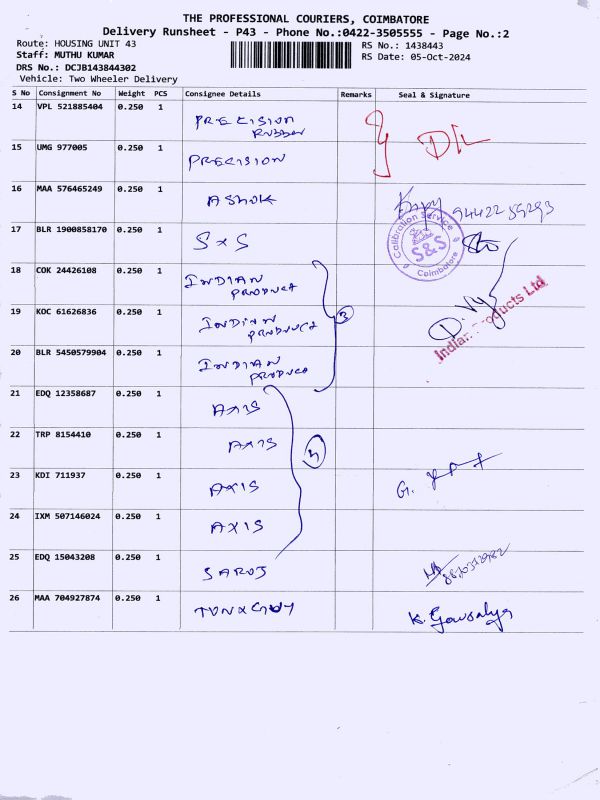 THE PROFESSIONAL COURIERS, COIMBATORE
Delivery Runsheet - P43 - Phone No.:0422-3505555 - Page No.:2
Route: HOUSING UNIT 43
RS No.: 1438443
Staff: MUTHU KUMAR
RS Date: 05-Oct-2024
DRS No.: DCJB143844302
Vehicle: Two Wheeler Delivery
S No Consignment No Weight PCS Consignee Details Remarks Seal & Signature
14 VPL 521885404 0.250 1 PRECISION
RUBBER
15 UMG 977005 0.250 1 PRECISION
16 MAA 576465249 0.250 1 ASHOK
17 BLR 1900858170 0.250 1 S x S
Calibration Service
S&S
Coimbatore
18 COK 24426108 0.250 1 INDIAN
PRODUCT
19 KOC 61626836 0.250 1 INDIAN
PRODUCT
3
Indian Products Ltd
20 BLR 5450579904 0.250 1 INDIAN
PRODUCT
21 EDQ 12358687 0.250 1 AXIS
22 TRP 8154410 0.250 1 AXIS
23 KDI 711937 0.250 1 AXIS
24 IXM 507146024 0.250 1 AXIS
25 EDQ 15043208 0.250 1 SAROJ
26 MAA 704927874 0.250 1 K. Gowsalya